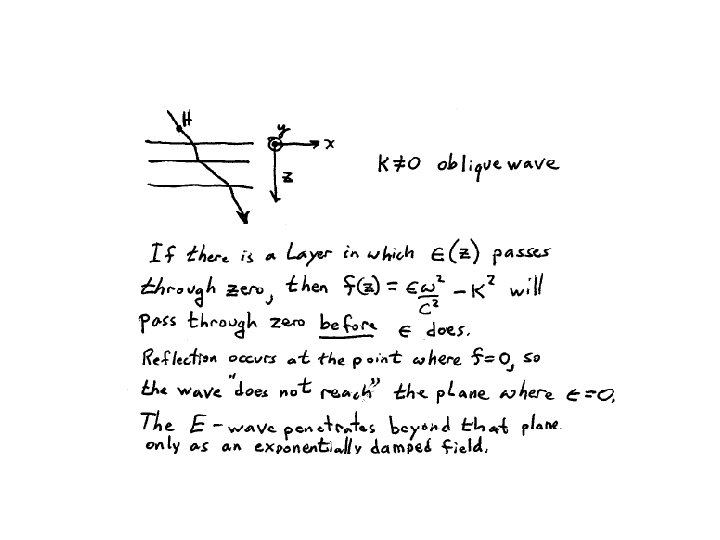 H
y
x
z
K≠0 oblique wave
If there is a Layer in which ϵ(z) passes
through zero, then f(z) = ϵω²/c² - K² will
pass through zero before ϵ does.
Reflection occurs at the point where f=0, so
the wave "does not reach" the plane where ϵ=0.
The E-wave penetrates beyond that plane
only as an exponentially damped field.